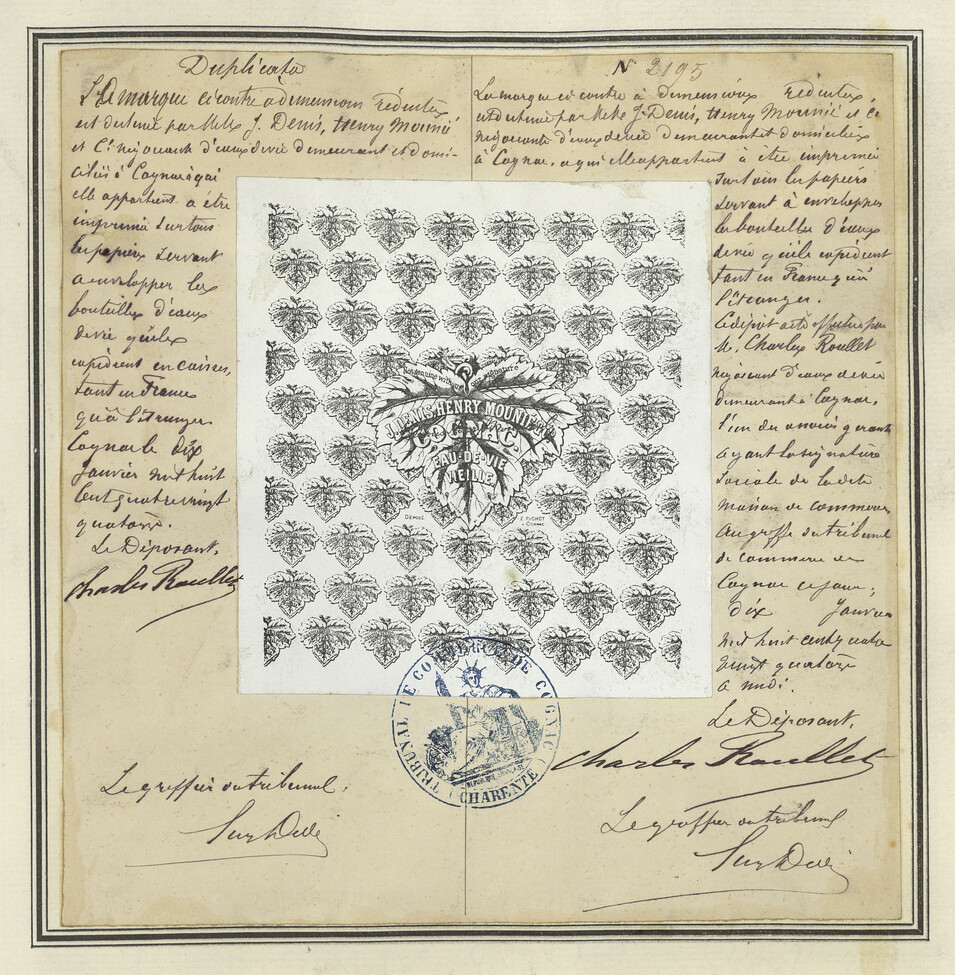 Duplicata
La marque ci contre a dimensions réduites,
est destinée par MM J. Denis, Henry Mounié
et Cie négociants d'eaux de vie demeurant et domi-
ciliés à Cognac à qui
elle appartient a être
imprimée sur tous
les papiers servant
a envelopper les
bouteilles d'eaux
de vie qu'ils
expédient en caisses,
tant en France
qu'à l'étranger
Cognac le dix
Janvier mil huit
cent quatre vingt
quatorze.
Le Déposant,
Charles Roullet
Le greffier du tribunal,
N° 2195
La marque ci contre à dimensions réduites,
est destinée par MM J. Denis, Henry Mounié et Cie
négociants d'eaux de vie demeurant et domiciliés
à Cognac, a qui elle appartient à être imprimée
sur tous les papiers
servant a envelopper
les bouteilles d'eaux
de vie qu'ils expédient
tant en France qu'à
l'étranger.
Ce dépôt a été effectué par
M. Charles Roullet
négociant d'eaux de vie
demeurant à Cognac,
l'un des associés gérants
ayant la signature
sociale de la dite
maison de commerce
au greffe du tribunal
de commerce de
Cognac ce jour,
dix Janvier
mil huit cent quatre
vingt quatorze
a midi.
Le Déposant,
Charles Roullet
Le greffier du tribunal
J. DENIS, HENRY MOUNIÉ & Co
COGNAC
EAU-DE-VIE
VIEILLE
DÉPOSÉ
TRIBUNAL DE COMMERCE DE COGNAC
(CHARENTE)